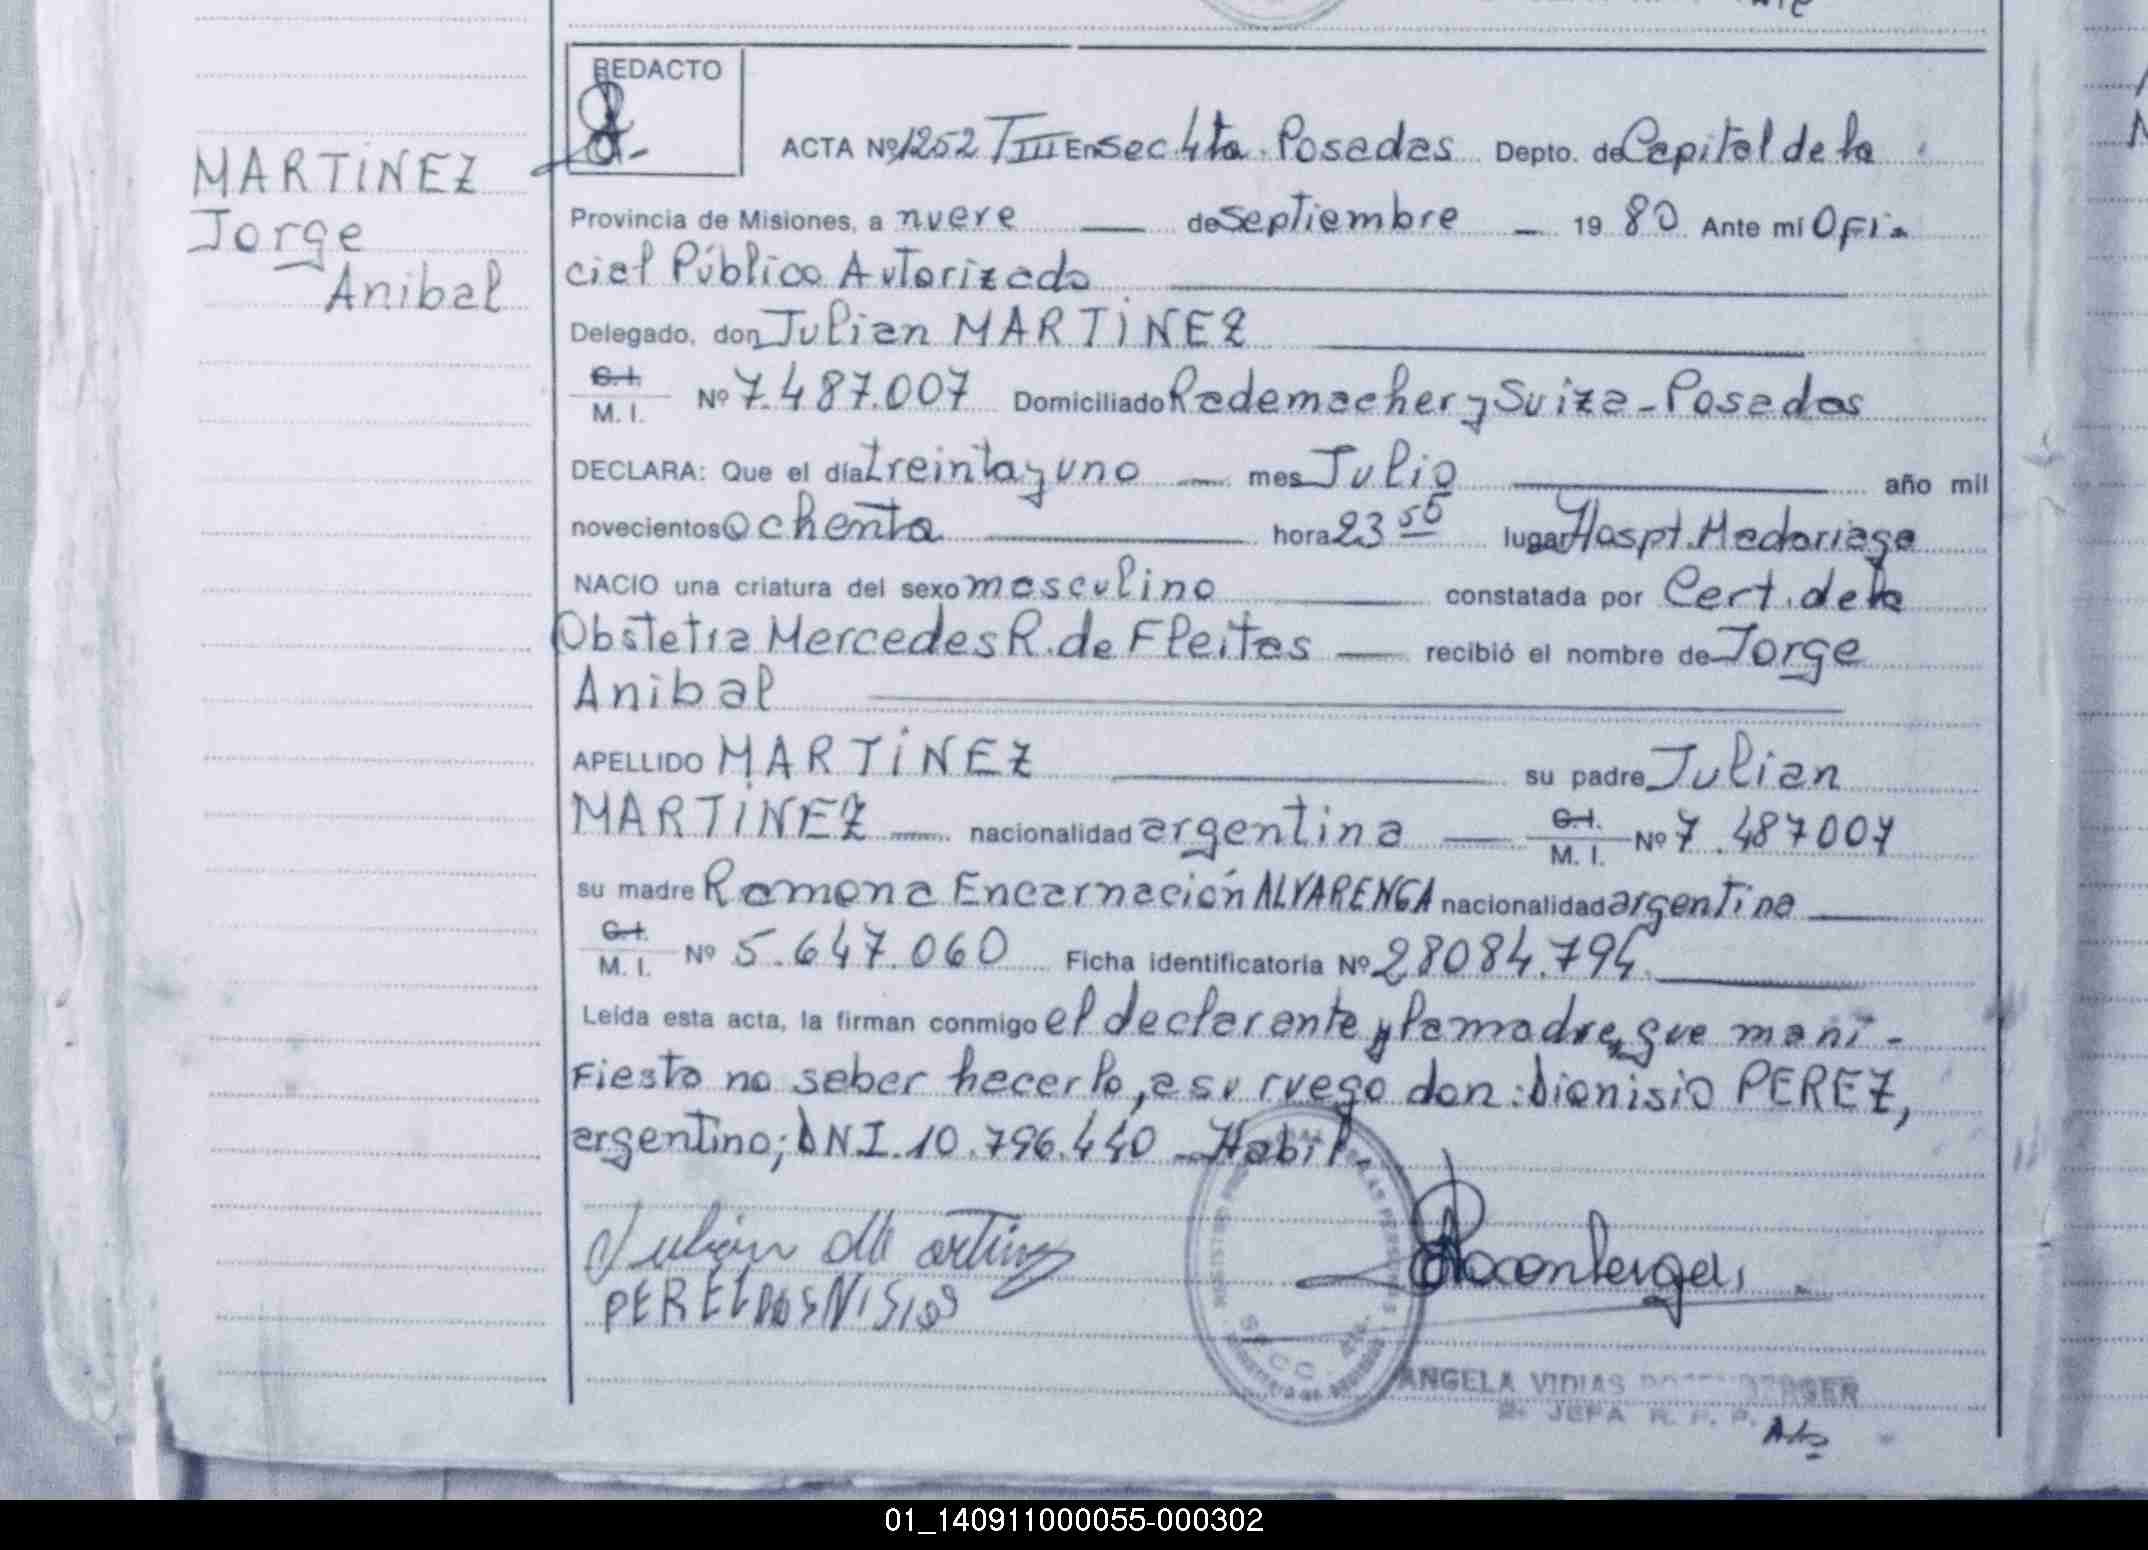 REDACTO
MARTINEZ
Jorge
Anibal
ACTA Nº 1252 TIII En Sec 4ta. Posadas Depto. de Capital de la
Provincia de Misiones, a nueve de Septiembre 19 80 Ante mi Ofi-
cial Público Autorizado
Delegado, don Julian MARTINEZ
C.I.
M. I. Nº 7.487.007 Domiciliado Rademacher y Suiza - Posadas
DECLARA: Que el día treinta y uno mes Julio año mil
novecientos ochenta hora 23 50 lugar Hospt. Madariaga
NACIO una criatura del sexo masculino constatada por Cert. de la
Obstetra Mercedes R. de Fleitas recibió el nombre de Jorge
Anibal
APELLIDO MARTINEZ su padre Julian
MARTINEZ nacionalidad argentina C.I. M. I. Nº 7.487007
su madre Ramona Encarnación ALVARENGA nacionalidad argentina
C.I.
M. I. Nº 5.647.060 Ficha identificatoria Nº 28084.794
Leída esta acta, la firman conmigo el declarante y la madre, que mani-
fiesta no saber hacerlo, a su ruego don: Dionisio PEREZ,
argentino; DNI. 10.796.440 - Habil.
Julián Martinez
ANGELA VIDIAS
2º JEFA R. P. P.
01_140911000055-000302